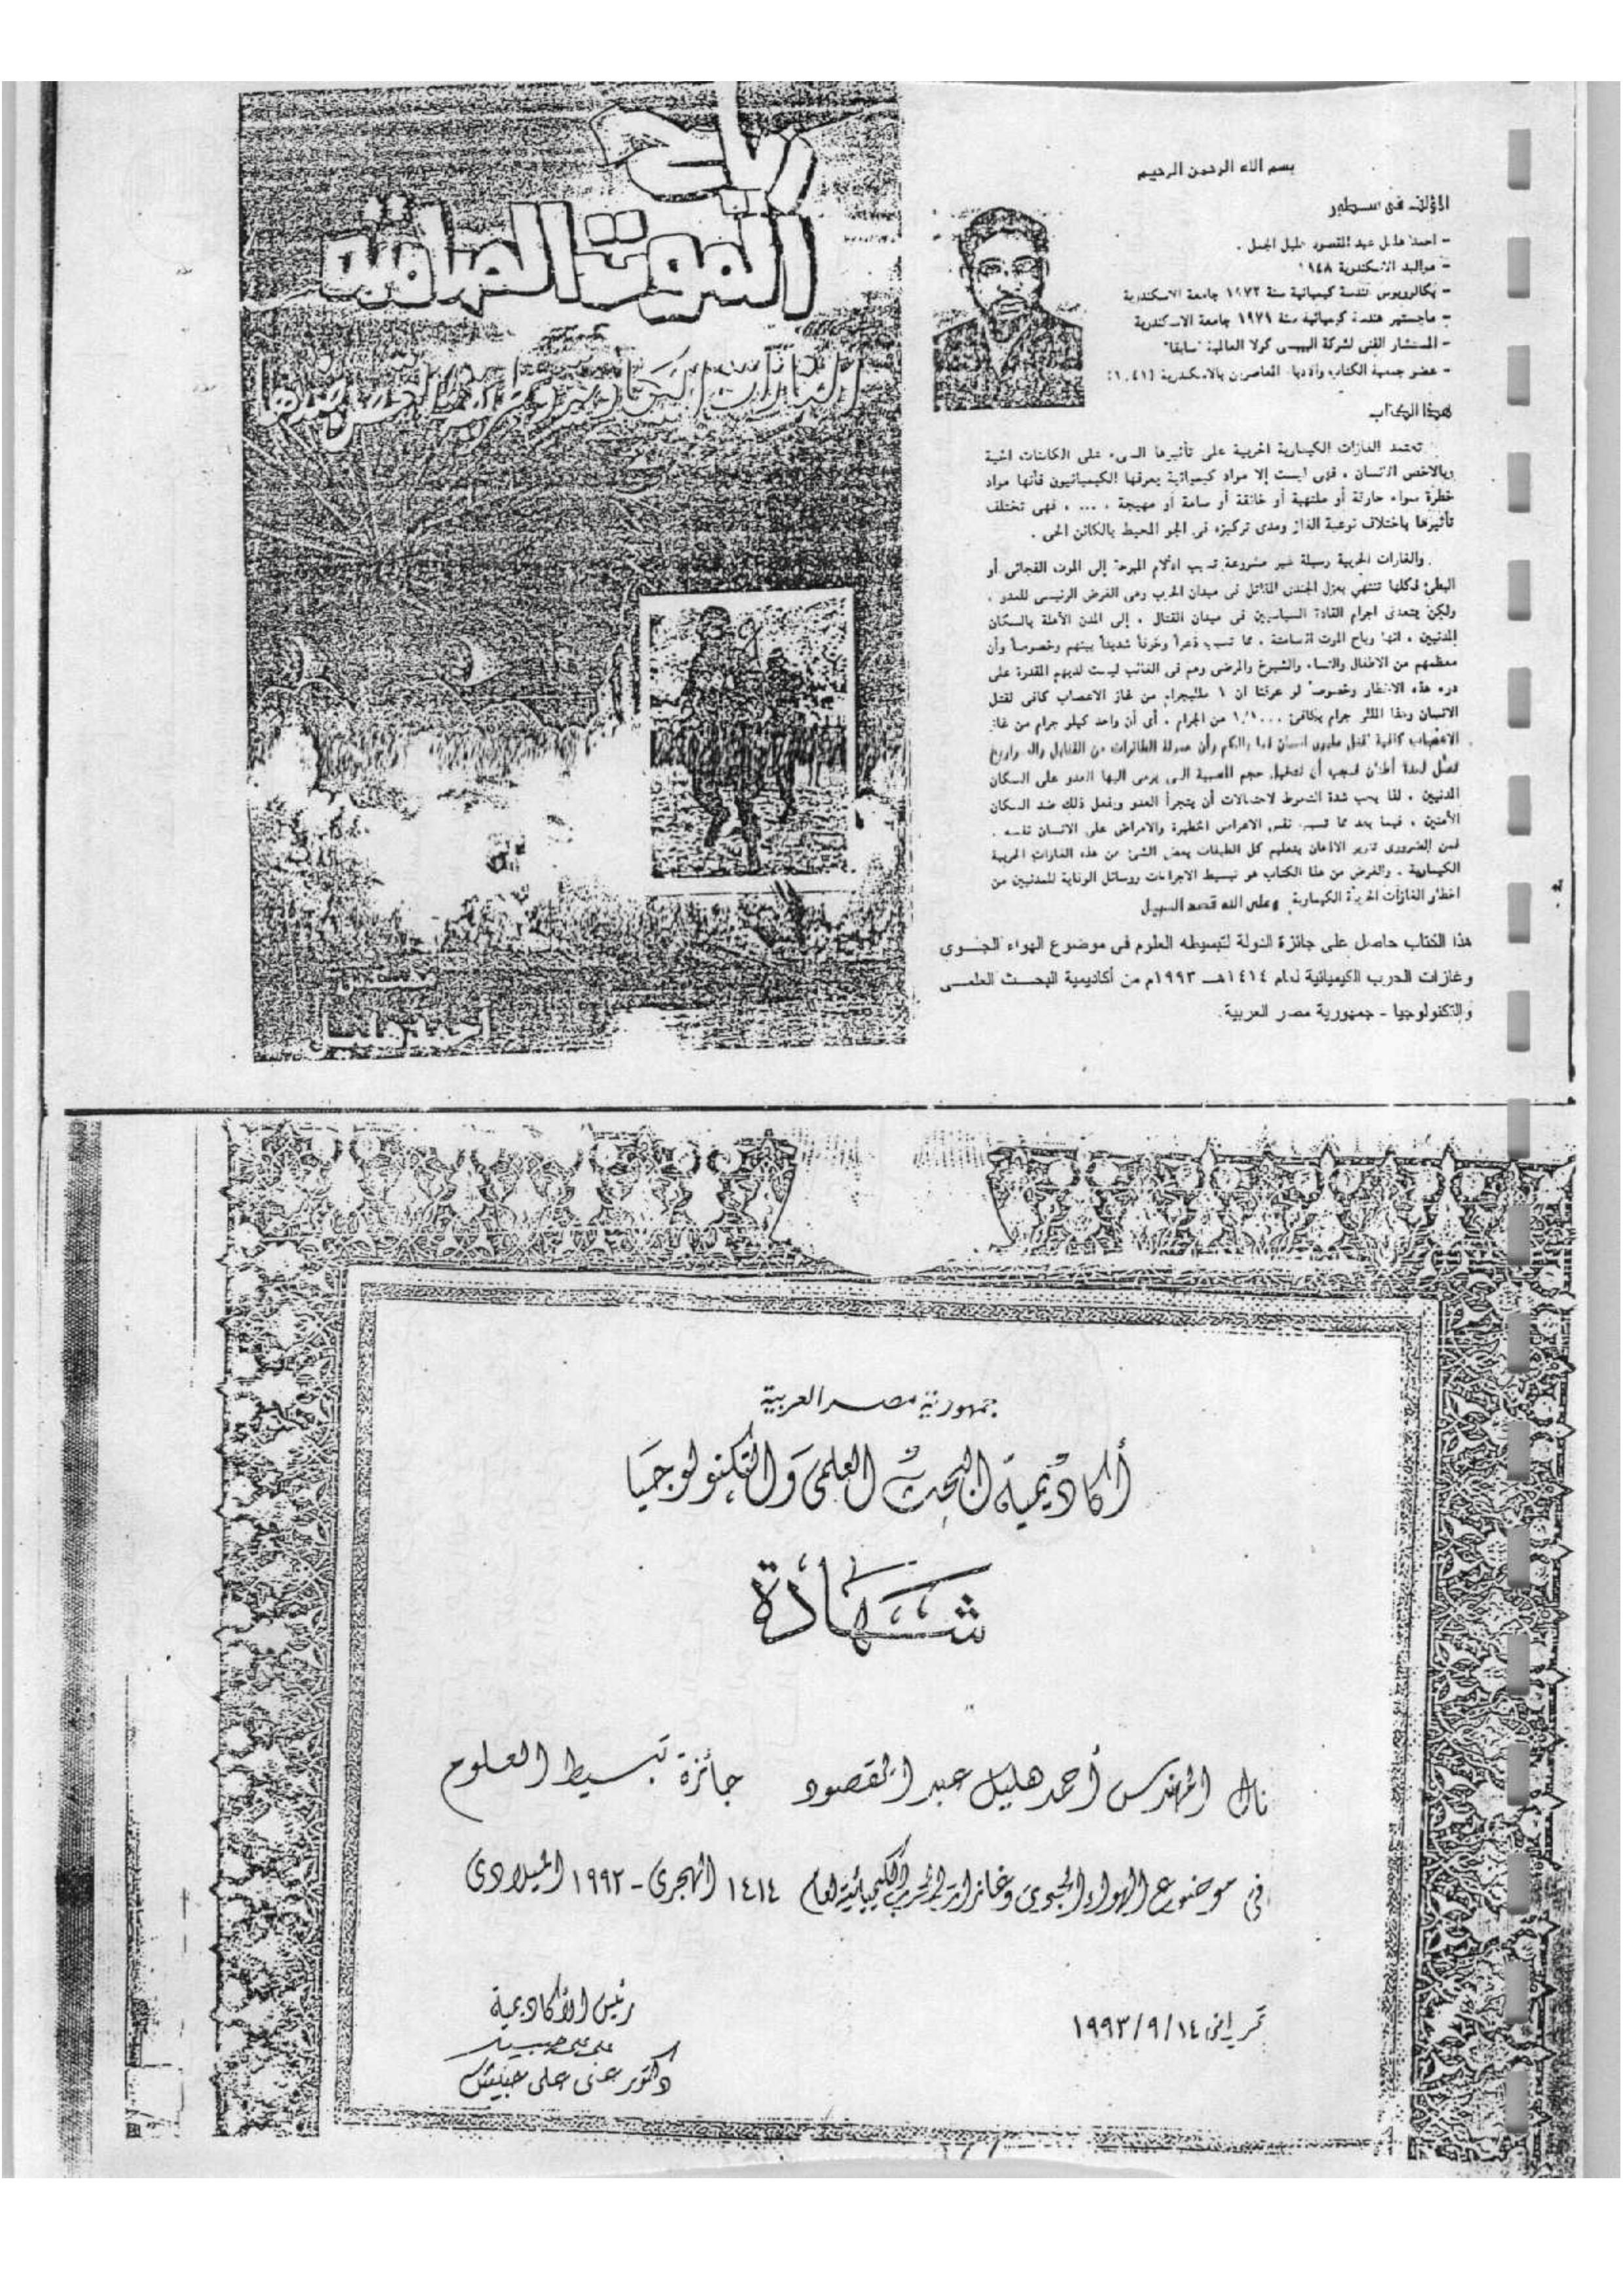 رياح
الموت الصامتة
الغازات الحربية وطرق التحصن ضدها
مهندس
أحمد هليل
بسم الله الرحمن الرحيم
المؤلف فى سطور
- احمد هليل عبد المقصود هليل الجمل .
- مواليد الاسكندرية ١٩٤٨
- بكالوريوس هندسة كيميائية سنة ١٩٧٢ جامعة الاسكندرية
- ماجستير هندسة كيميائية سنة ١٩٧٩ جامعة الاسكندرية
- المستشار الفنى لشركة الببسى كولا العالمية "سابقا"
- عضو جمعية الكتاب والادباء المعاصرين بالاسكندرية
هذا الكتاب
تعتمد الغازات الكيماوية الحربية على تأثيرها السىء على الكائنات الحية
وبالاخص الانسان ، فهى ليست إلا مواد كيميائية يعرفها الكيميائيون فأنها مواد
خطرة سواء حارقة أو ملتهبة أو خانقة أو سامة أو مهيجة ، ... ، فهى تختلف
تأثيرها باختلاف نوعية الغاز ومدى تركيزه فى الجو المحيط بالكائن الحى .
والغازات الحربية وسيلة غير مشروعة تسبب الآلام المبرحة إلى الموت الفجائى أو
البطئ فكلها تنتهي بعزل الجندى المقاتل فى ميدان الحرب وهى الغرض الرئيسى للعدو ،
ولكن يتعدى اجرام القادة السياسيين فى ميدان القتال ، إلى المدن الآهلة بالسكان
المدنيين ، انها رياح الموت الصامتة ، مما تسبب ذعراً وخوفاً شديداً بينهم وخصوصاً وأن
معظمهم من الاطفال والنساء والشيوخ والمرضى وهم فى الغالب ليست لديهم المقدرة على
درء هذه الاخطار وخصوصاً لو عرفنا ان ١ ملليجرام من غاز الاعصاب كافى لقتل
الانسان وهذا المللى جرام يكافئ من الجرام ، أى أن واحد كيلو جرام من غاز
الاعصاب كافية لقتل مليون انسان فما بالكم وأن حمولة الطائرات من القنابل والصواريخ
تصل لعدة أطنان فيجب أن نتخيل حجم المصيبة التى يرمى اليها العدو على السكان
المدنيين ، لذا يجب شدة التحوط لاحتمالات أن يتجرأ العدو ويفعل ذلك ضد السكان
الآمنين ، فيما بعد مما تسبب نفس الاعراض الخطيرة والامراض على الانسان نفسه .
فمن الضرورى تنوير الاذهان بتعليم كل الطبقات بعض الشئ من هذه الغازات الحربية
الكيماوية . والغرض من هذا الكتاب هو تبسيط الاجراءات ووسائل الوقاية للمدنيين من
اخطار الغازات الحربية الكيماوية وعلى الله قصد السبيل
هذا الكتاب حاصل على جائزة الدولة لتبسيطه العلوم فى موضوع الهواء الجوى
وغازات الحرب الكيميائية لعام ١٤١٤هـ ١٩٩٣م من أكاديمية البحث العلمى
والتكنولوجيا - جمهورية مصر العربية.
جمهورية مصر العربية
أكاديمية البحث العلمى والتكنولوجيا
شهادة
نال المهندس أحمد هليل عبد المقصود جائزة تبسيط العلوم
فى موضوع الهواء الجوى وغازات الحرب الكيميائية لعام ١٤١٤ الهجرى - ١٩٩٢ الميلادى
تحريرا فى ١٩٩٣/٩/١٤
رئيس الأكاديمية
دكتور على على حبيش